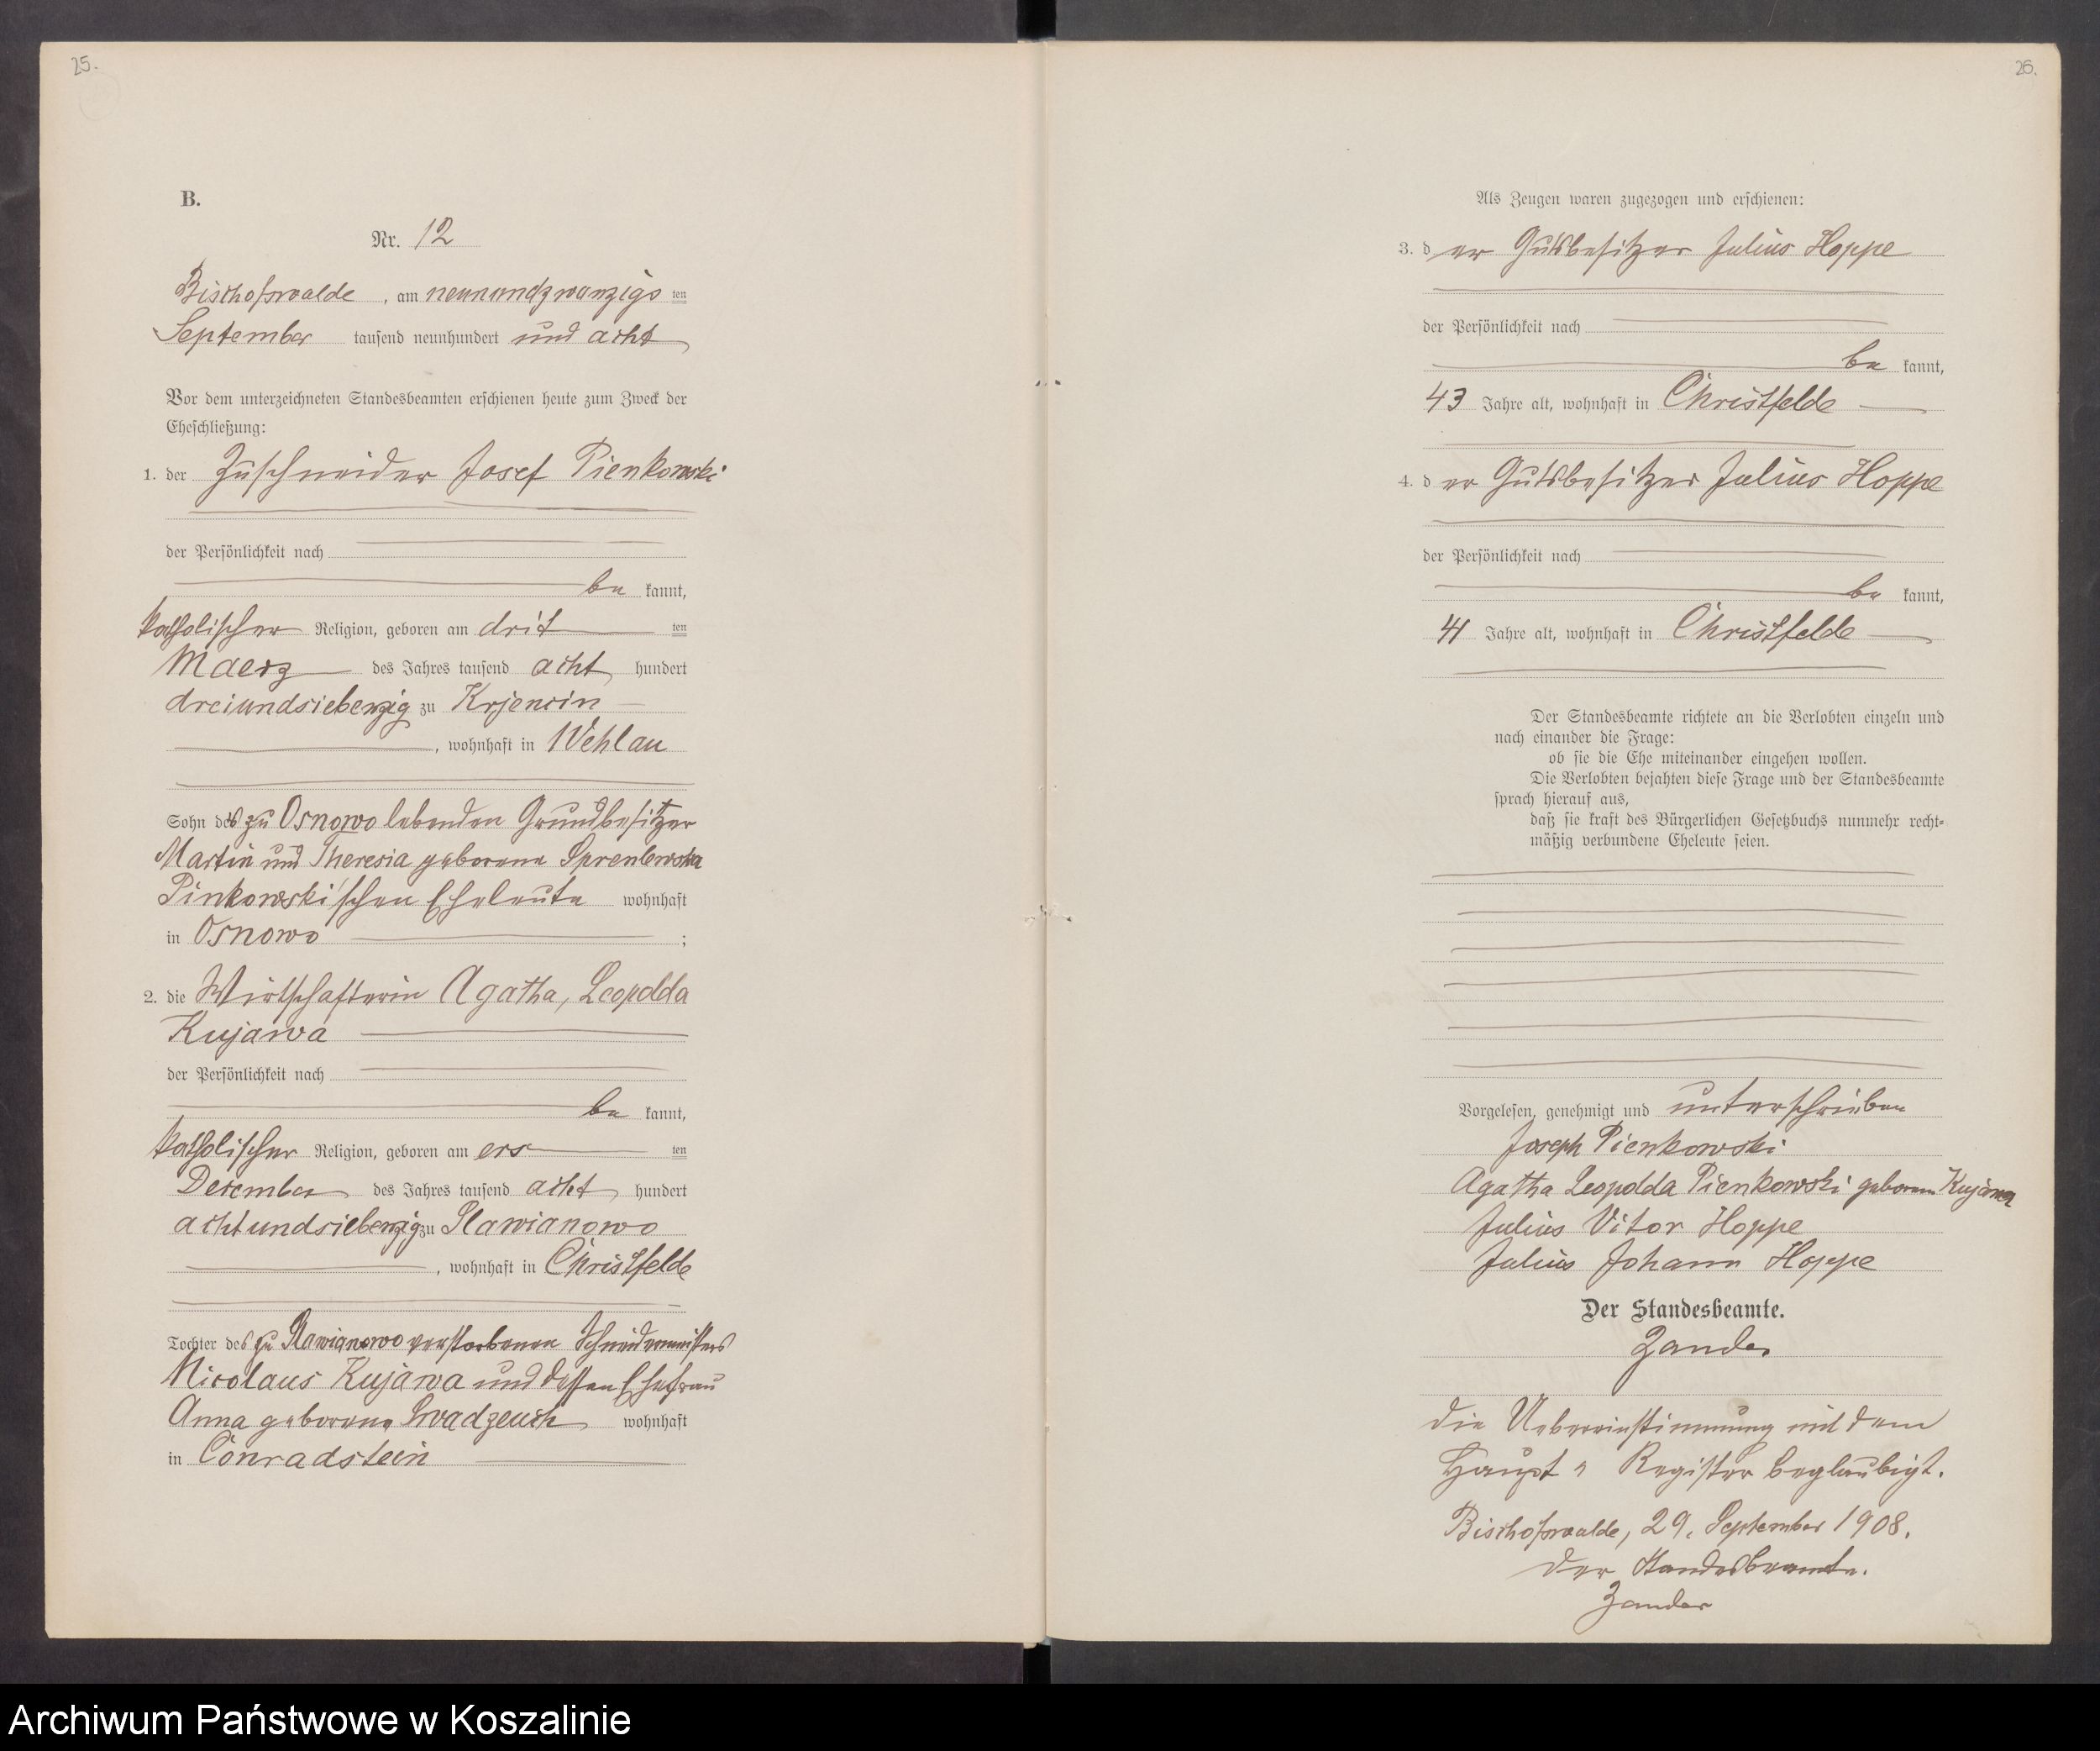 25.
B.
Nr. 12
Bischofswalde, am neunundzwanzigs ten
September tausend neunhundert und acht
Vor dem unterzeichneten Standesbeamten erschienen heute zum Zweck der
Eheschließung:
1. der Zuschneider Josef Pienkowski
der Persönlichkeit nach
be kannt,
katholischer Religion, geboren am drit ten
Maerz des Jahres tausend acht hundert
dreiundsiebenzig zu
, wohnhaft in Wehlau
Sohn des zu Osnowo lebenden Grundbesitzer
Martin und Theresia geborene
Pinkowski'schen Eheleute wohnhaft
in Osnowo ;
2. die Wirtschafterin Agatha, Leopolda
Kujawa
der Persönlichkeit nach
be kannt,
katholischer Religion, geboren am ers ten
Dezember des Jahres tausend acht hundert
achtundsiebenzig zu Slawianowo
, wohnhaft in Christfelde
Tochter des zu Slawianowo verstorbenen Schneidermeisters
Nicolaus Kujawa und dessen Ehefrau
Anna geborene wohnhaft
in Conradstein
26.
Als Zeugen waren zugezogen und erschienen:
3. d er Gutsbesitzer Julius Hoppe
der Persönlichkeit nach
be kannt,
43 Jahre alt, wohnhaft in Christfelde
4. d er Gutsbesitzer Julius Hoppe
der Persönlichkeit nach
be kannt,
41 Jahre alt, wohnhaft in Christfelde
Der Standesbeamte richtete an die Verlobten einzeln und
nach einander die Frage:
ob sie die Ehe miteinander eingehen wollen.
Die Verlobten bejahten diese Frage und der Standesbeamte
sprach hierauf aus,
daß sie kraft des Bürgerlichen Gesetzbuchs nunmehr recht-
mäßig verbundene Eheleute seien.
Vorgelesen, genehmigt und unterschrieben
Joseph Pienkowski
Agatha Leopolda Pienkowski geborene Kujawa
Julius Vitor Hoppe
Julius Johann Hoppe
Der Standesbeamte.
Zander
Die Uebereinstimmung mit dem
Haupt - Register beglaubigt.
Bischofswalde, 29. September 1908.
Der Standesbeamte.
Zander
Archiwum Państwowe w Koszalinie